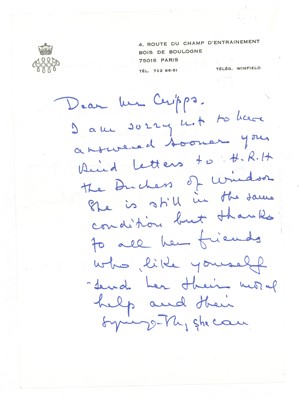 4, ROUTE DU CHAMP D'ENTRAINEMENT
BOIS DE BOULOGNE
75016 PARIS
TÉLÉG. WINFIELD
Dear Mr Cripps.
I am sorry not to have
answered sooner your
kind letters to H.R.H
the Duchess of Windsor
She is still in the same
condition but thanks
to all her friends
who, like yourself
send her their moral
help and their
sympathy, she can